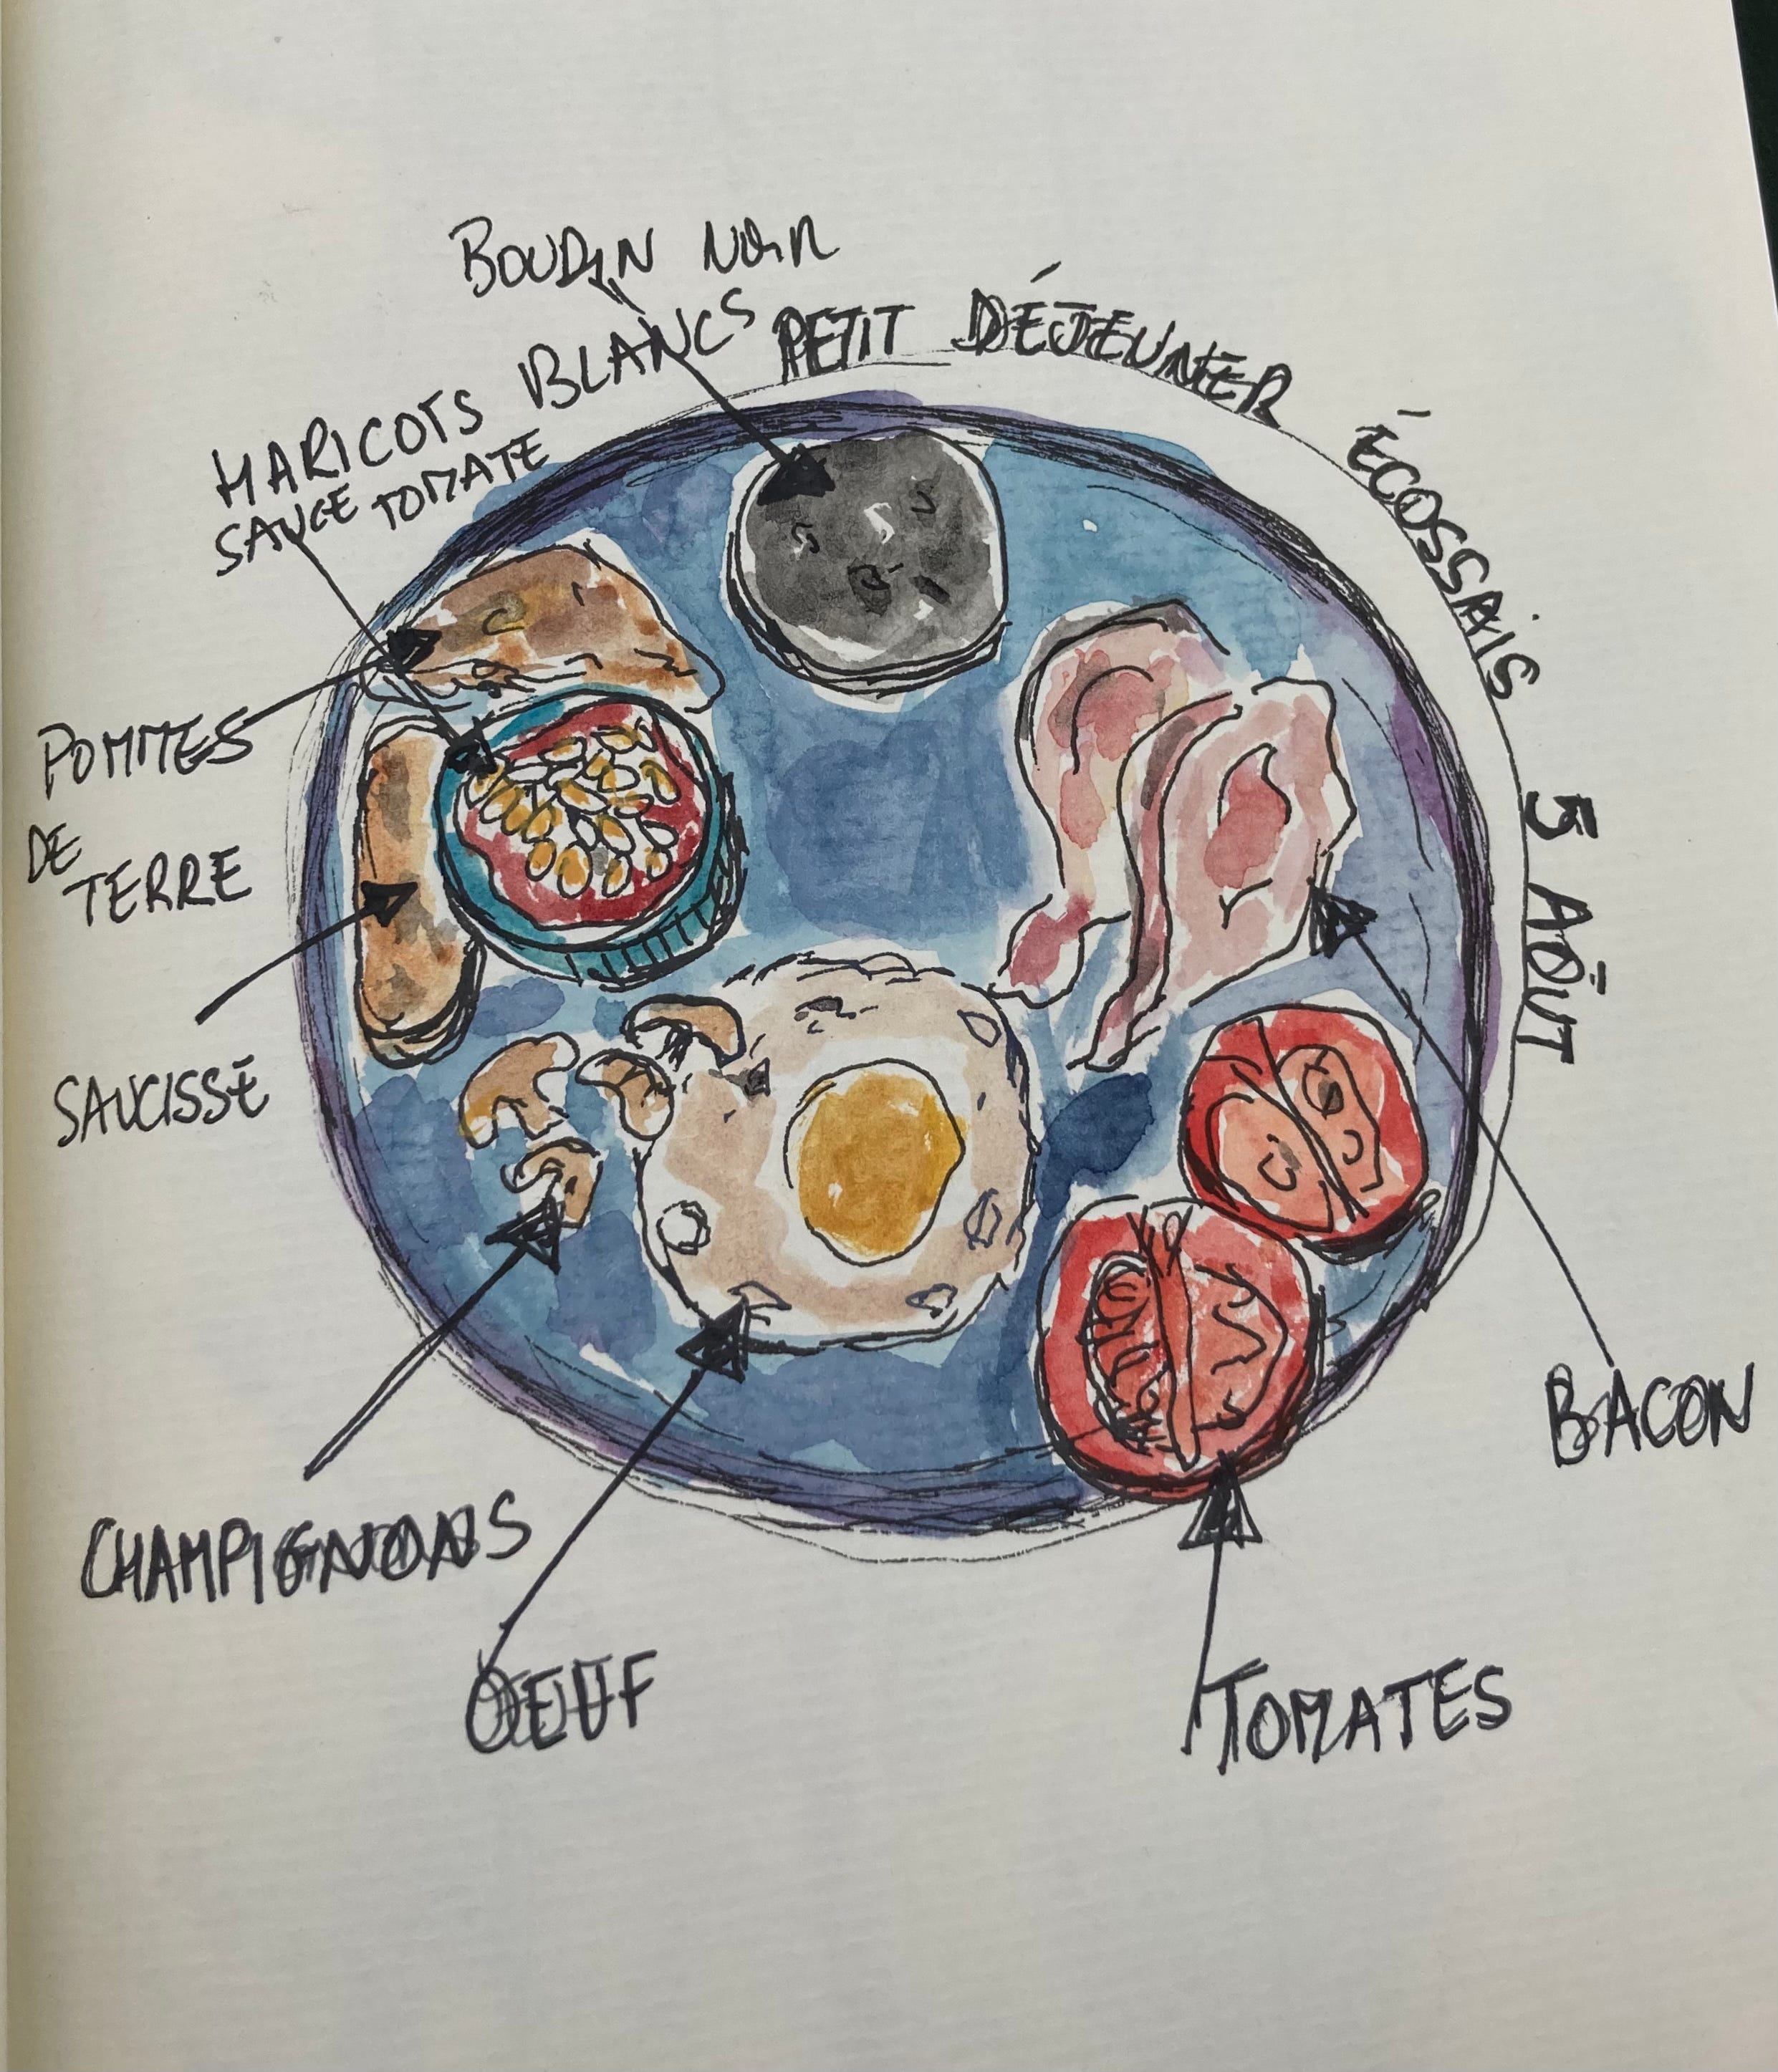 BOUDIN NOIR
HARICOTS BLANCS
SAUCE TOMATE
PETIT DÉJEUNER ÉCOSSAIS 5 AOÛT
POMMES
DE
TERRE
SAUCISSE
CHAMPIGNONS
OEUF
TOMATES
BACON